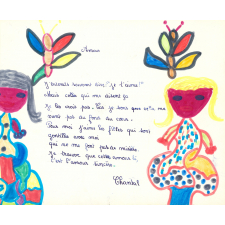 Amour
J'entends souvent dire "je t'aime!"
Mais celles qui me disent ça
Je les crois pas. Car je sens que cela ne
vient pas du fond du cœur.
Pour moi j'aime les filles qui sont
gentilles avec moi
qui ne me font pas de misère.
Je trouve que cette amour là
c'est l'amour sincère.
Chantal